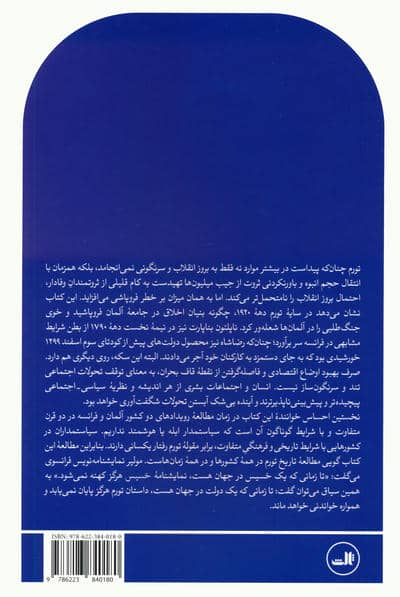 تورم چنان‌که پیداست در بیشتر موارد نه فقط به بروز انقلاب و سرنگونی نمی‌انجامد، بلکه همزمان با
انتقال حجم انبوه و باورنکردنی ثروت از جیب میلیون‌ها تهیدست به کام قلیلی از ثروتمندانِ وفادار،
احتمال بروز انقلاب را نامحتمل‌تر می‌کند. اما به همان میزان بر خطر فروپاشی می‌افزاید. این کتاب
نشان می‌دهد در سایهٔ تورم دههٔ ۱۹۲۰، چگونه بنیان اخلاق در جامعهٔ آلمان فروپاشید و خوی
جنگ‌طلبی را در آلمان‌ها شعله‌ور کرد. ناپلئون بناپارت نیز در نیمهٔ نخست دههٔ ۱۷۹۰ از بطن شرایط
مشابهی در فرانسه سر برآورد؛ چنان‌که رضاشاه نیز محصول دولت‌های پیش از کودتای سوم اسفند ۱۲۹۹
خورشیدی بود که به جای دستمزد به کارکنان خود آجر می‌دادند. البته این سکه، روی دیگری هم دارد.
صرف بهبود اوضاع اقتصادی و فاصله‌گرفتن از نقطهٔ قاف بحران، به‌معنای توقف تحولات اجتماعی
تند و سرنگون‌ساز نیست. انسان و اجتماعات بشری از هر اندیشه و نظریهٔ سیاسی ـ اجتماعی
پیچیده‌تر و پیش‌بینی‌ناپذیرترند و آینده بی‌شک آبستن تحولات شگفت‌آوری خواهد بود.
نخستین احساس خوانندهٔ این کتاب در زمان مطالعهٔ رویدادهای دو کشور آلمان و فرانسه در دو قرن
متفاوت و با شرایط گوناگون آن است که سیاستمدار ابله یا هوشمند نداریم. سیاستمداران در
کشورهایی با شرایط تاریخی و فرهنگی متفاوت، برابر مقولهٔ تورم رفتار یکسانی دارند. بنابراین مطالعهٔ این
کتاب گویی مطالعهٔ تاریخ تورم در همهٔ کشورها و در همهٔ زمان‌هاست. مولیر نمایشنامه‌نویس فرانسوی
می‌گفت: «تا زمانی که یک خسیس در جهان هست، نمایشنامهٔ خسیس هرگز کهنه نمی‌شود.» به
همین سیاق می‌توان گفت: تا زمانی که یک دولت در جهان هست، داستان تورم هرگز پایان نمی‌یابد و
همواره خواندنی خواهد ماند.
ISBN: 978-622-384-018-0
9 786223 840180
ثالث